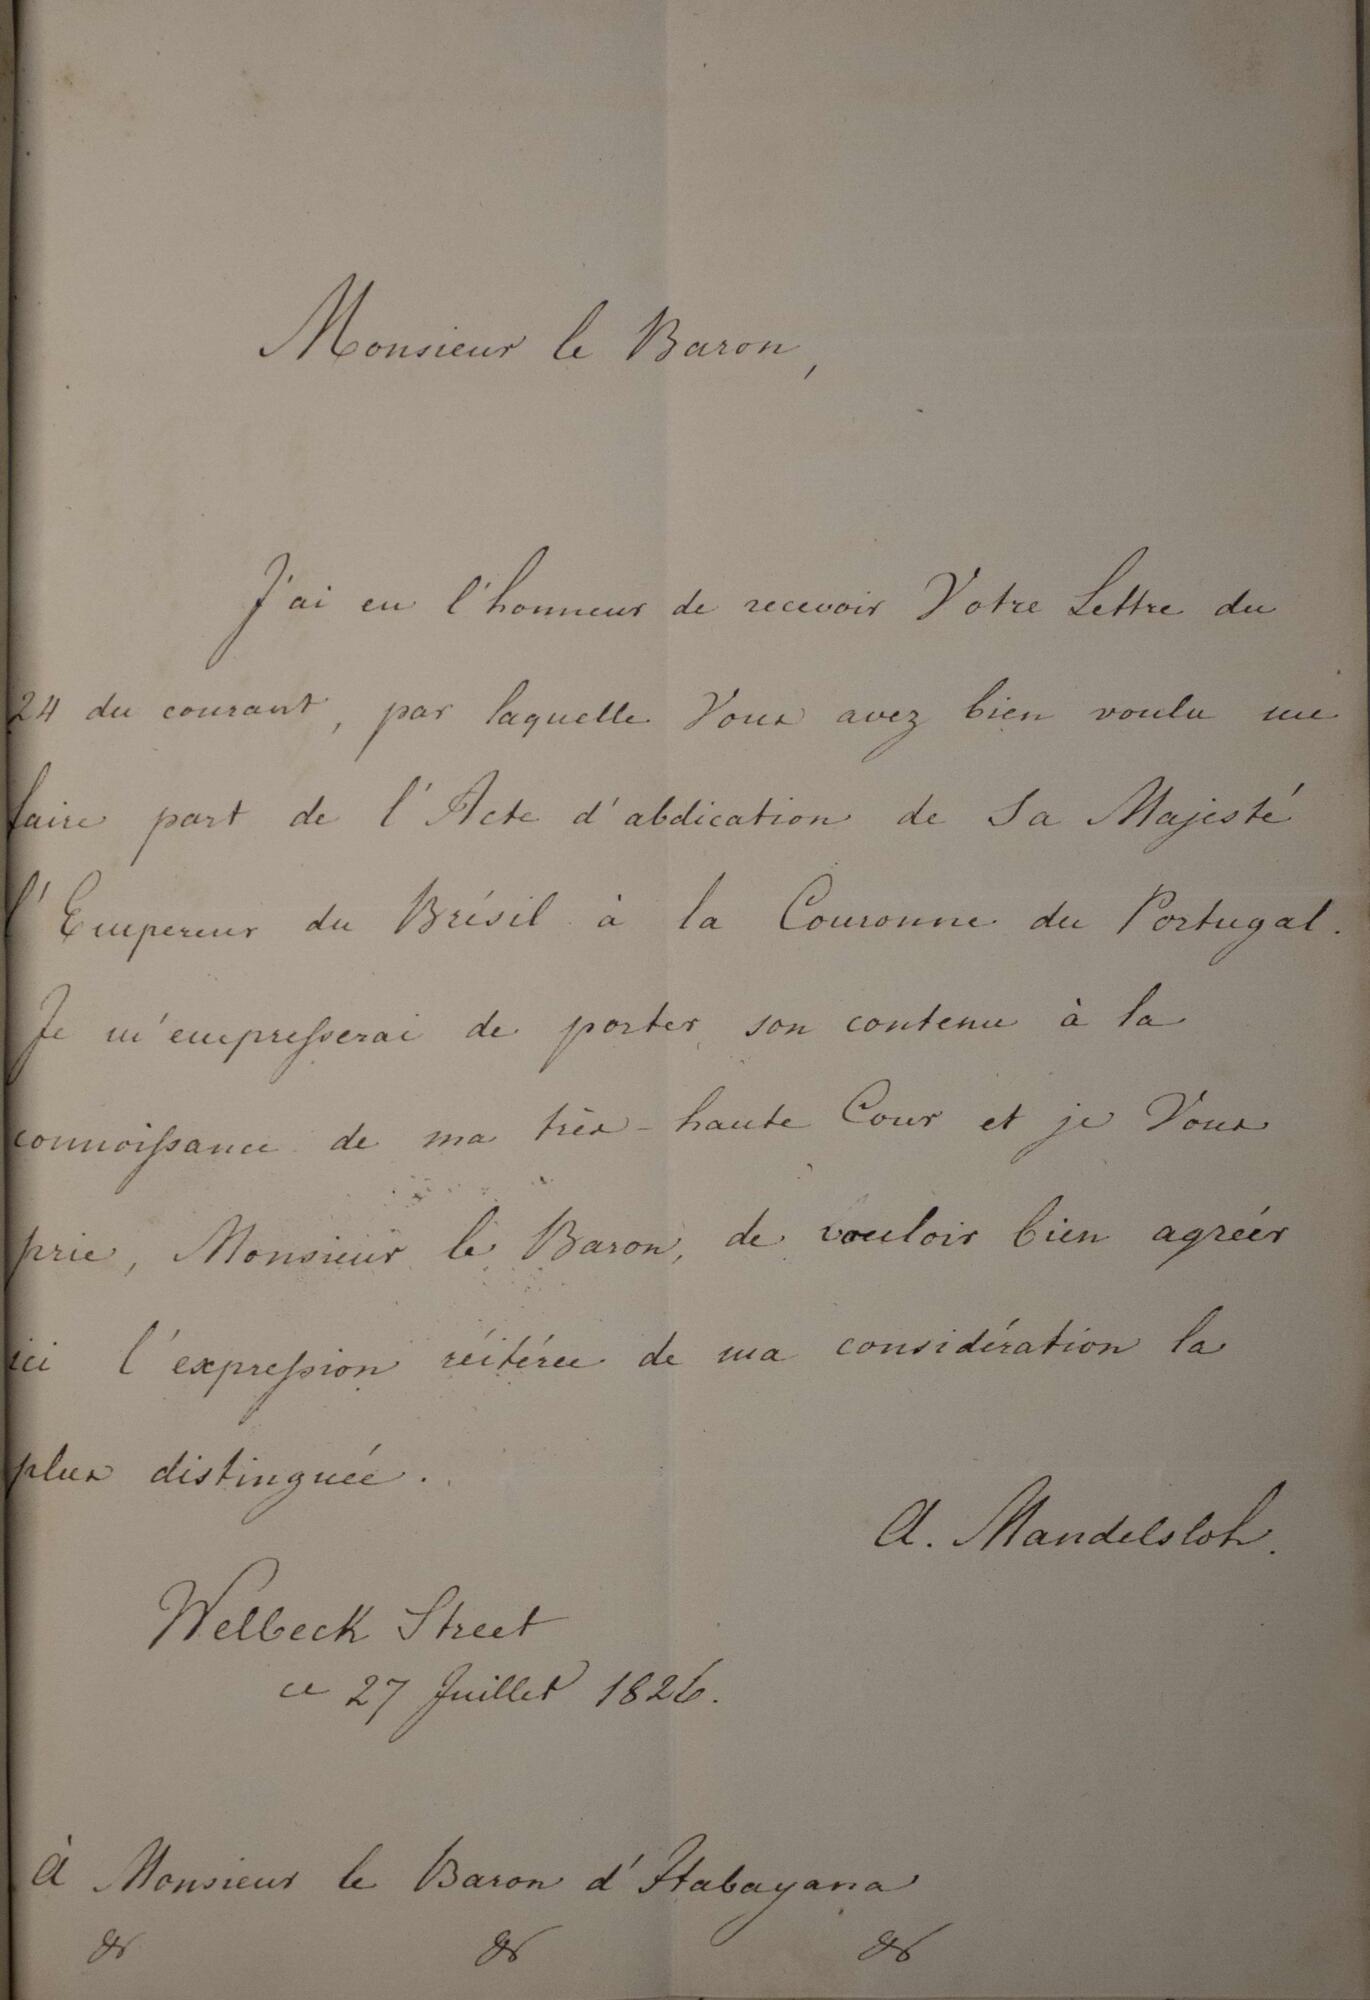 Monsieur le Baron,
J'ai eu l'honneur de recevoir Votre Lettre du
24 du courant, par laquelle Vous avez bien voulu me
faire part de l'Acte d'abdication de Sa Majesté
l'Empereur du Brésil à la Couronne du Portugal.
Je m'empresserai de porter son contenu à la
connoissance de ma très-haute Cour et je Vous
prie, Monsieur le Baron, de vouloir bien agréér
ici l'expression réitérée de ma considération la
plus distinguée.
A. Mandelsloh.
Welbeck Street
ce 27 Juillet 1826.
À Monsieur le Baron d'Itabayana
& & &